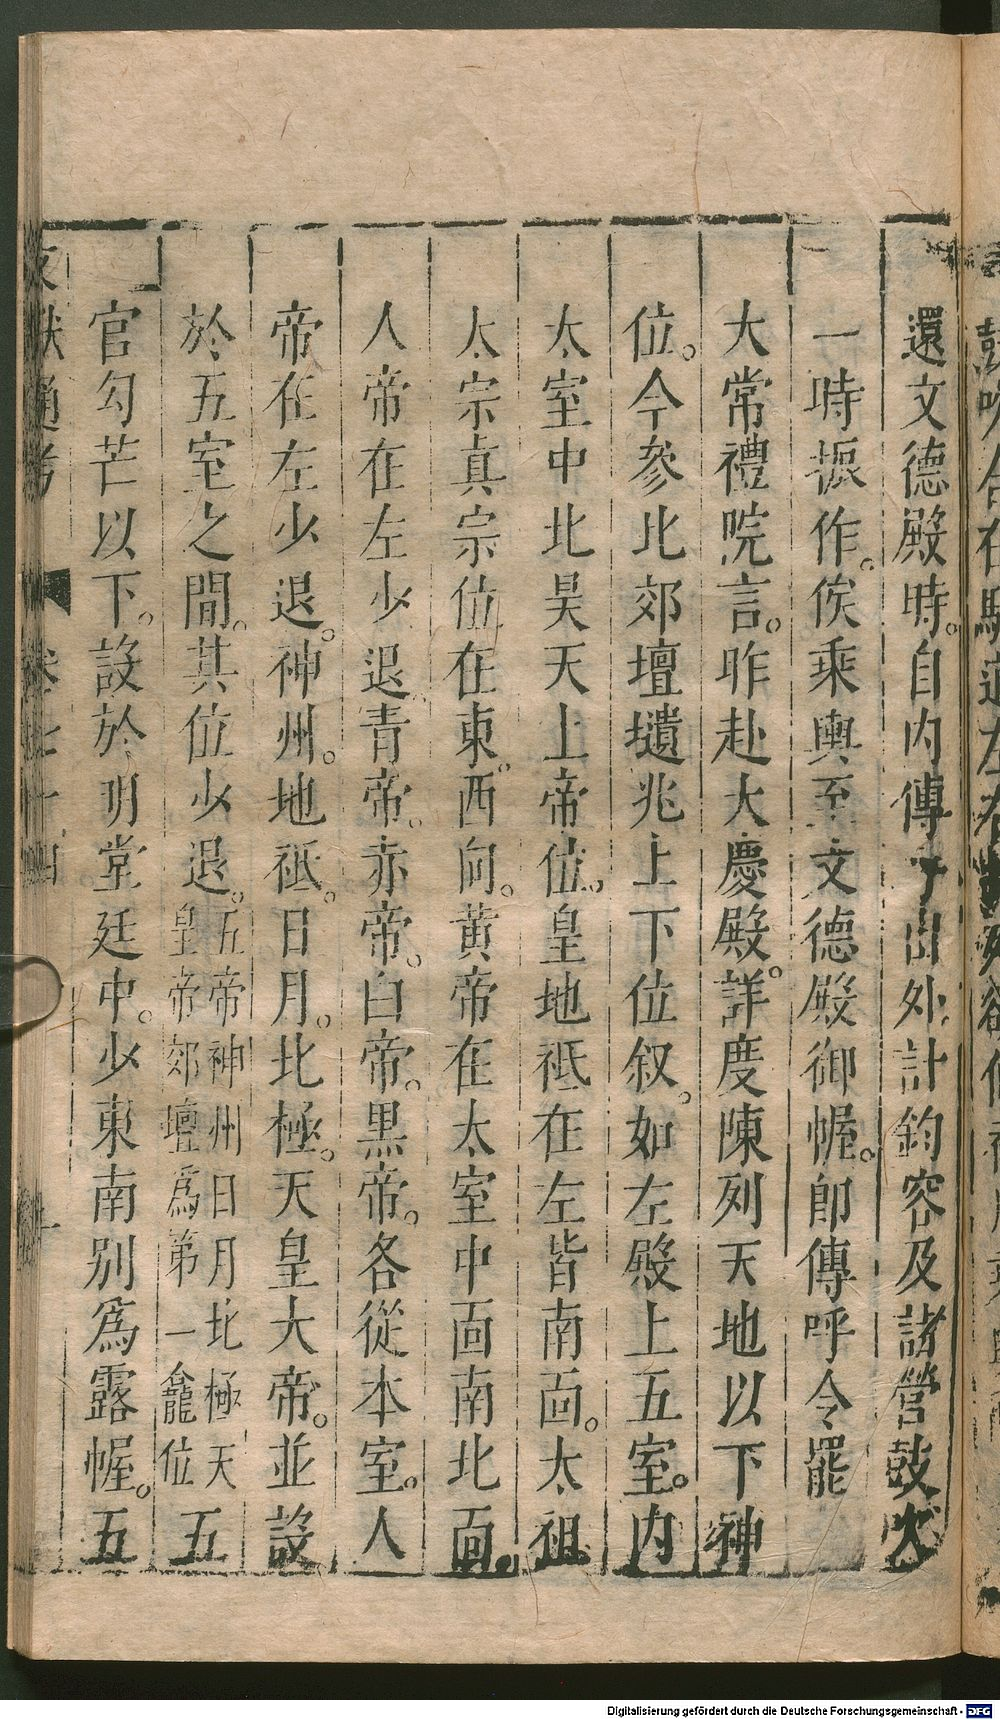 還文德殿時。自内傳呼出外計鈞容及諸營鼓吹
一時振作。俟乘輿至文德殿御幄。即傳呼令罷
大常禮院言。昨赴大慶殿。詳度陳列天地以下神
位。今參北郊壇壝兆上下位叙。如左殿上五室。内
太室中北昊天上帝位。皇地祗在左皆南面。太祖
太宗真宗位在東。西向。黄帝在太室中面南北面。
人帝在左少退青帝。赤帝。白帝。黒帝。各從本室。人
帝在左少退。神州。地祗。日月。北極。天皇大帝。並設
於五室之間。其位少退。五帝神州日月北極天皇帝郊壇為第一龕位五
官勾芒以下。設於明堂廷中。少東南別為露幄。五
文獻通考 卷七十四 十
Digitalisierung gefördert durch die Deutsche Forschungsgemeinschaft - DFG